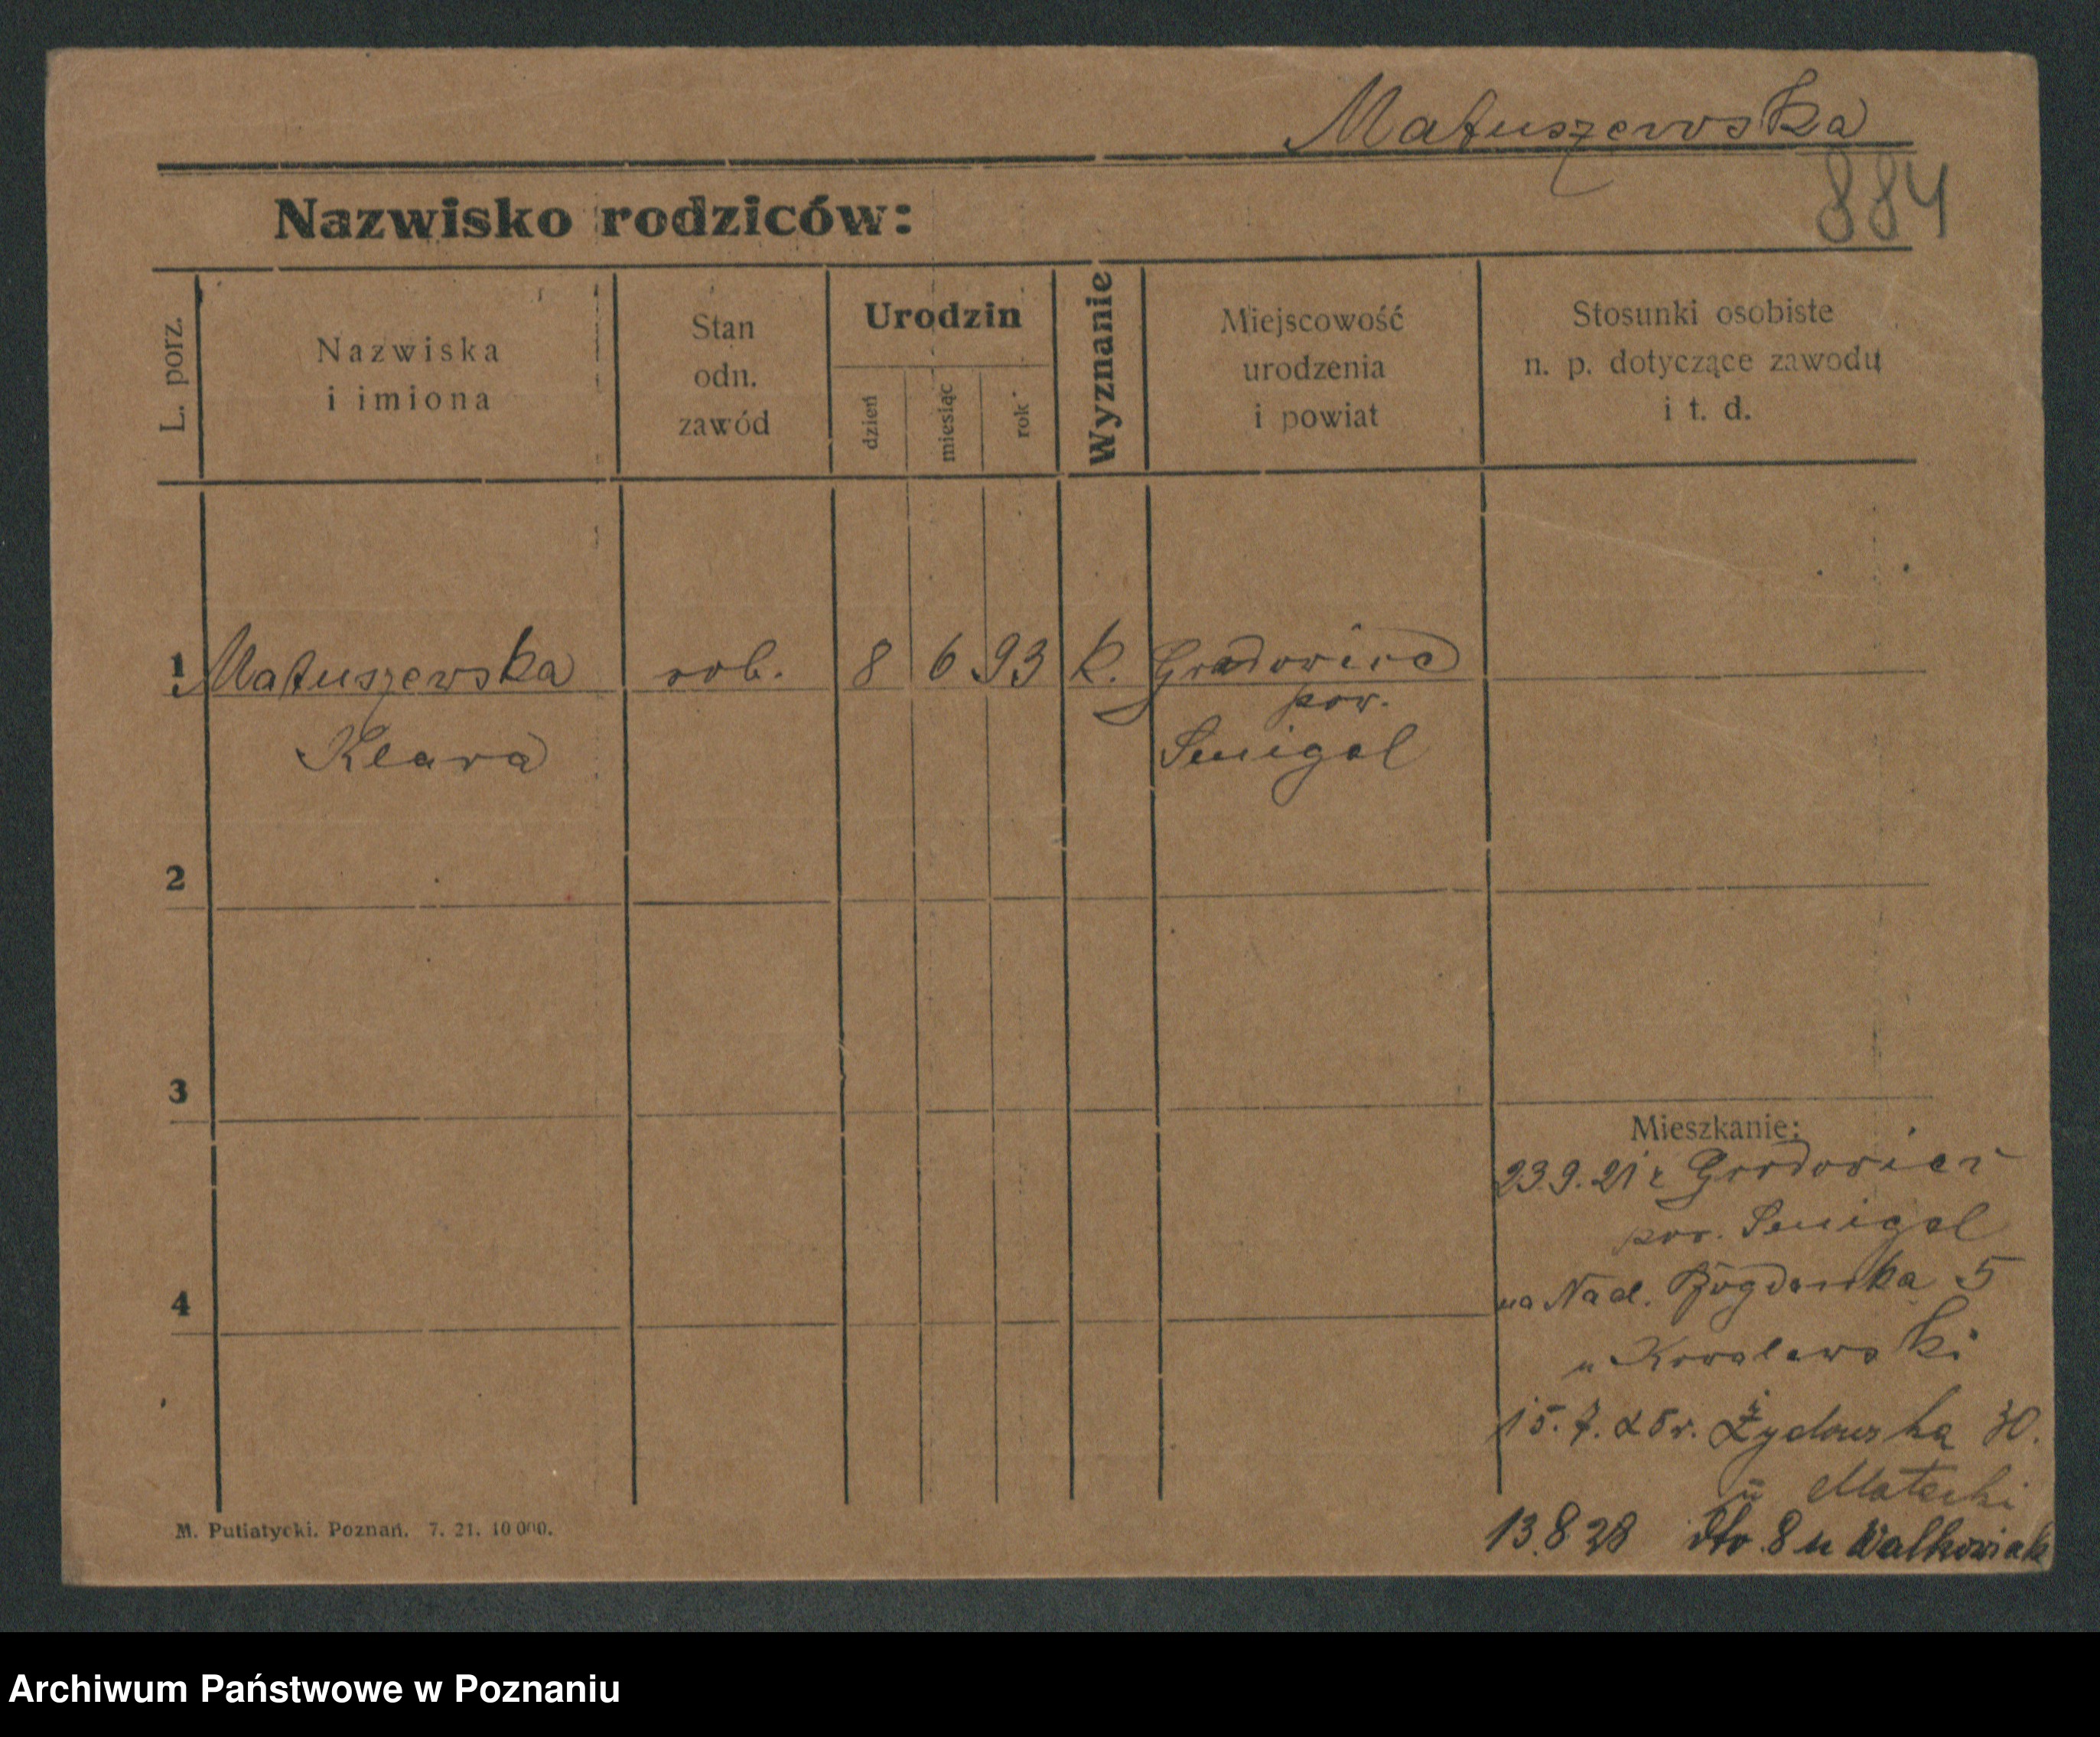 Matuszewska
884
Nazwisko rodziców:
L. porz.
Nazwiska
i imiona
Stan
odn.
zawód
Urodzin
dzień
miesiąc
rok
Wyznanie
Miejscowość
urodzenia
i powiat
Stosunki osobiste
n. p. dotyczące zawodu
i t. d.
1 Matuszewska rob. 8 6 93 k. Gradowice
pow.
Klara Smigel
2
3
Mieszkanie:
23.9.21 z Gradowice
pow. Smigel
4
na Nad. Bogdanka 5
u Kowalewski
15.7. 25 r. Żydowska 30.
u Matecki
M. Putiatycki. Poznań. 7. 21. 10 000.
13.8 28 dto 8 u Walkowiak
Archiwum Państwowe w Poznaniu